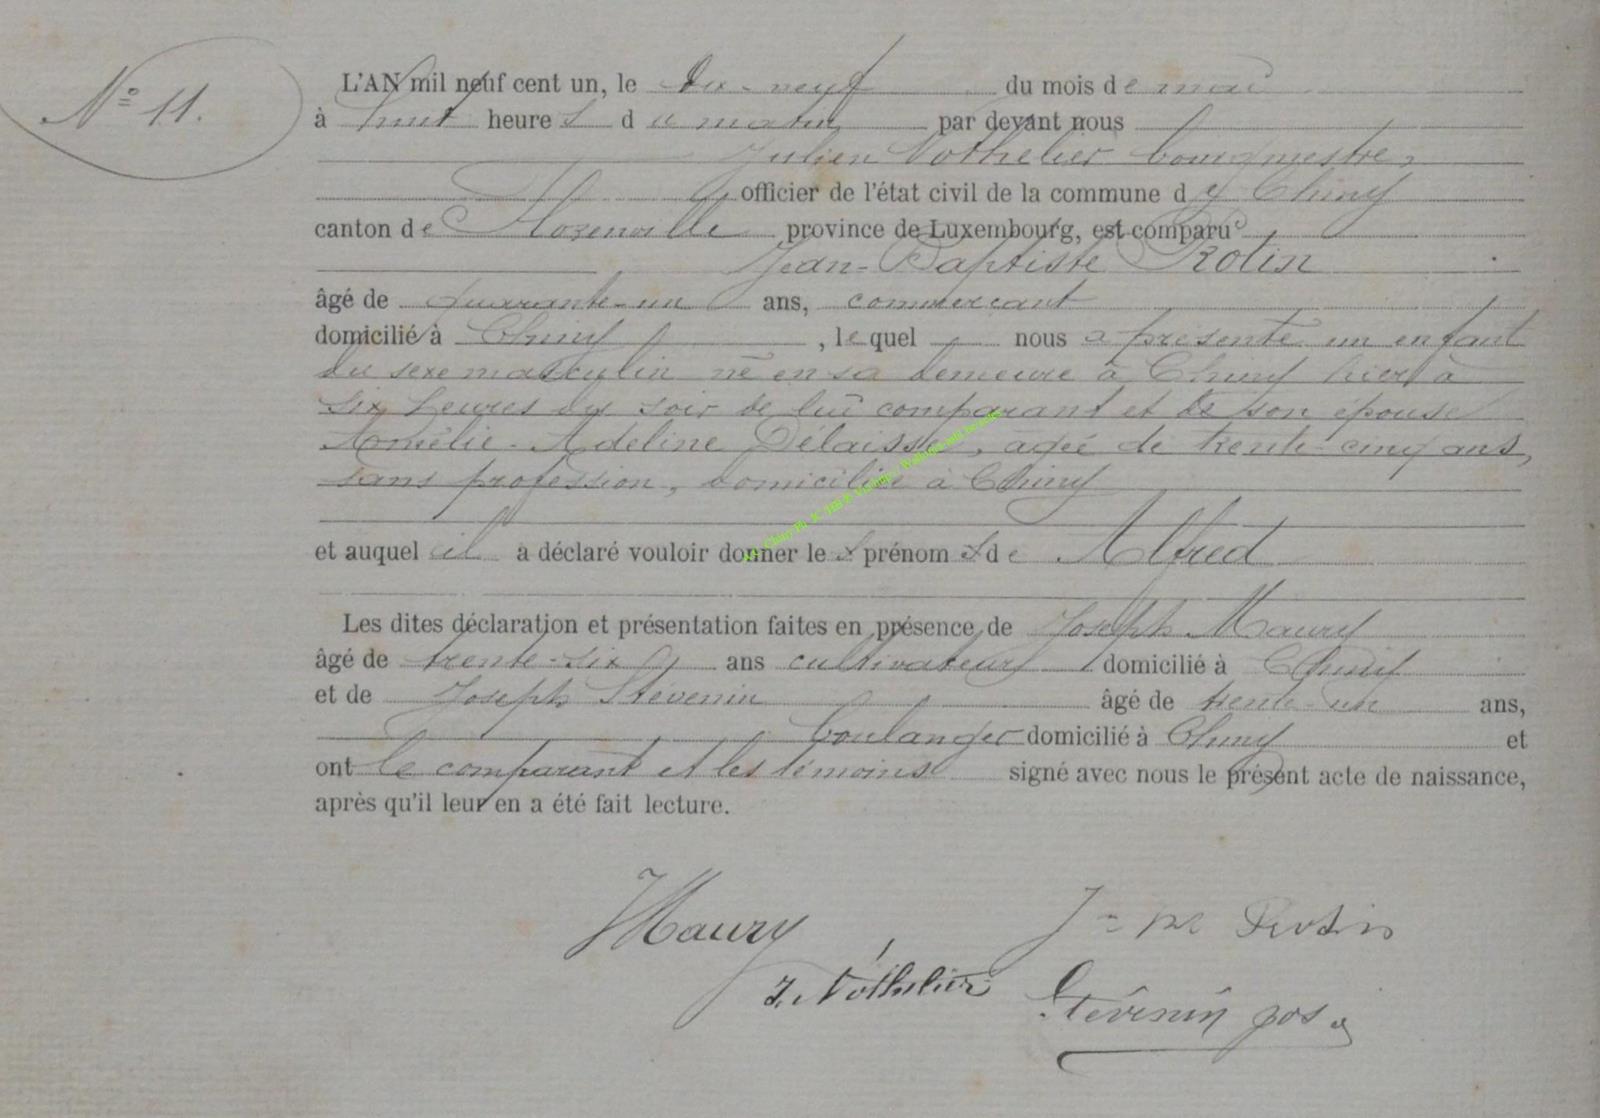 N° 11.
L'AN mil neuf cent un, le dix-neuf du mois de mai
à huit heures du matin par devant nous
Julien Nothelier bourgmestre,
officier de l'état civil de la commune d Chiny
canton de Florenville province de Luxembourg, est comparu
Jean-Baptiste Rolin
âgé de quarante-un ans, commerçant
domicilié à Chiny, lequel nous a présenté un enfant
du sexe masculin né en sa demeure à Chiny hier à
six heures du soir de lui comparant et de son épouse
Amélie-Adeline Délaisse, agée de trente-cinq ans,
sans profession, domiciliée à Chiny
et auquel il a déclaré vouloir donner le prénom de Alfred
Les dites déclaration et présentation faites en présence de Joseph Maury
âgé de trente-six ans cultivateur domicilié à Chiny
et de Joseph Stévenin âgé de trente-un ans,
boulanger domicilié à Chiny et
ont le comparant et les témoins signé avec nous le présent acte de naissance,
après qu'il leur en a été fait lecture.
JMaury J= Rolin
J. Nothelier Stévenin jos